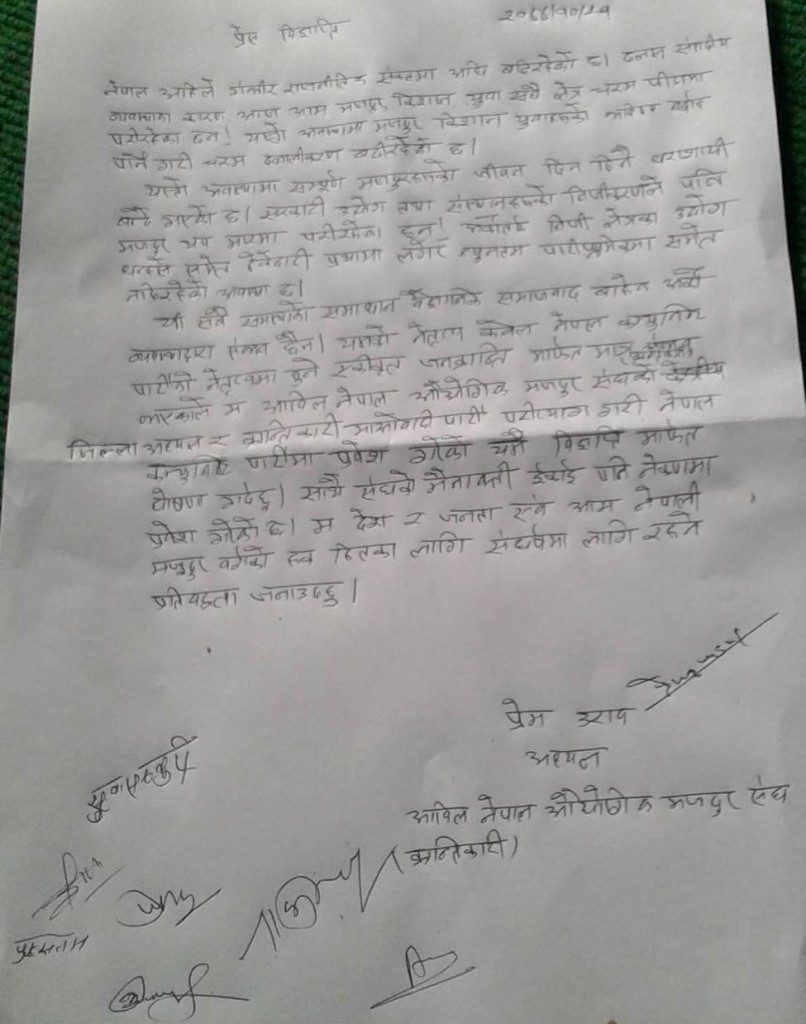 प्रेस विज्ञप्ति
नेपाल अहिले गंभीर राजनीतिक संकटमा अघि बढिरहेको छ। दलाल संसदीय
व्यवस्थाका कारण आज आम मजदुर, किसान, युवा सबै क्षेत्र चरम पीडामा
परीरहेका छन्। यस्तो अवस्थामा मजदुर किसान युवाहरुको
पनि गरी चरम दलालीकरण बढीरहेको छ।
यस्तो अवस्थामा सम्पूर्ण मजदुरहरुको जीवन दिन दिनै धरासायी
बन्दै गएको छ। सरकारी उद्योग तथा संस्थानहरुको निजीकरणले पनि
मजदुर थप मारमा परीरहेका छन्। अर्कोतर्फ निजी क्षेत्रका उद्योग
धन्दाले समेत ठेकेदारी प्रथामा लगेर न्युनतम पारीश्रमिकमा समेत
नदिइरहेको अवस्था छ।
यी सबै समस्याको समाधान वैज्ञानिक समाजवाद बाहेक अर्को
व्यवस्थाद्वारा संभव छैन। यसको नेतृत्व केवल नेपाल कम्युनिष्ट
पार्टीको नेतृत्वमा हुने एकीकृत जनक्रान्ति मार्फत मात्र
भएकोले म अखिल नेपाल औद्योगिक मजदुर संघको
जिल्ला अध्यक्ष र क्रान्तिकारी माओवादी पार्टी परीत्याग गरी नेपाल
कम्युनिष्ट पार्टीमा प्रवेश गरेको यसै विज्ञप्ति मार्फत
घोषणा गर्दछु। साथै संघको मैनावती ईकाई पनि नेकपामा
प्रवेश गरेको छ। म देश र जनता एवं आम नेपाली
मजदुर वर्गको हक हितका लागि संघर्षमा लागि रहने
प्रतिबद्धता जनाउदछु।
प्रेम उराव
अध्यक्ष
अखिल नेपाल औद्योगिक मजदुर संघ
(क्रान्तिकारी)